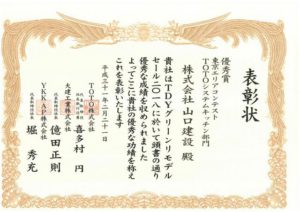 表彰状
優秀賞
東京エリアコンテスト
TOTOシステムキッチン部門
株式会社 山口建設 殿
貴社はTDYグリーンリモデル
セール二〇一八に於いて頭書の通り
優秀な成績を収められました
よってここに貴社の優秀な功績を称え
これを表彰いたします
平成三十一年二月二十一日
TOTO株式会社
喜多村 円
大建工業株式会社
億田正則
YKK AP株式会社
堀 秀充